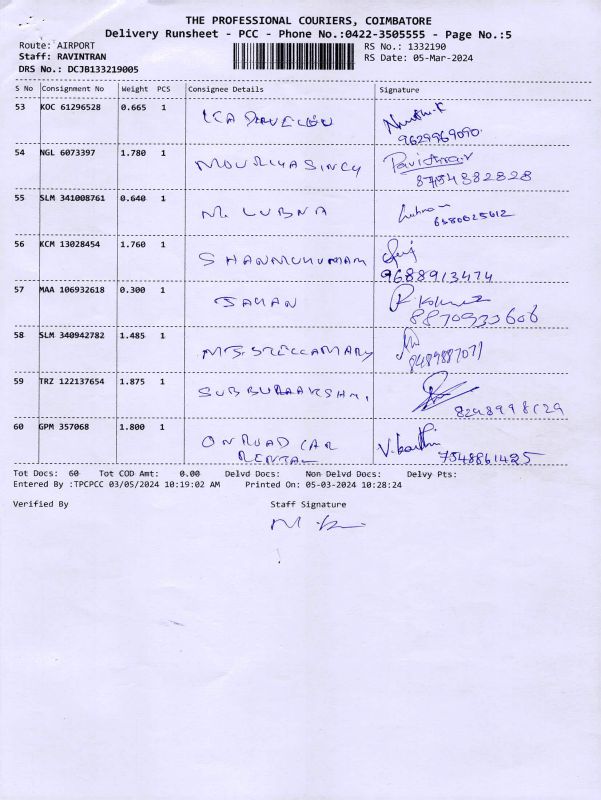 THE PROFESSIONAL COURIERS, COIMBATORE
Delivery Runsheet - PCC - Phone No.:0422-3505555 - Page No.:5
Route: AIRPORT RS No.: 1332190
Staff: RAVINTRAN RS Date: 05-Mar-2024
DRS No.: DCJB133219005
S No Consignment No Weight PCS Consignee Details Signature
53 KOC 61296528 0.665 1
9629969090
54 NGL 6073397 1.780 1 MOURIYASINGY Pavithra
8754382828
55 SLM 341008761 0.640 1 M. LUBNA
6380625612
56 KCM 13028454 1.760 1 SHANMUHUMAM
9688913474
57 MAA 106932618 0.300 1
8870933606
58 SLM 340942782 1.485 1
8489887071
59 TRZ 122137654 1.875 1
60 GPM 357068 1.800 1 ON ROAD CAR V.
RENTAL 7548861425
Tot Docs: 60 Tot COD Amt: 0.00 Delvd Docs: Non Delvd Docs: Delvy Pts:
Entered By :TPCPCC 03/05/2024 10:19:02 AM Printed On: 05-03-2024 10:28:24
Verified By Staff Signature